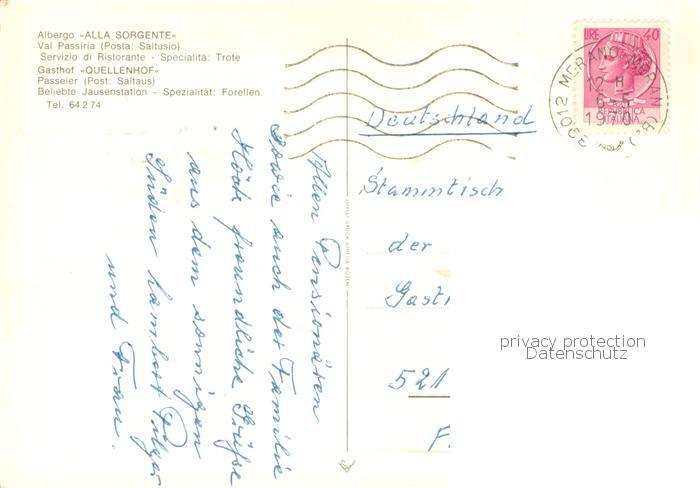 Albergo «ALLA SORGENTE»
Val Passiria (Posta: Saltusio)
Servizio di Ristorante - Specialità: Trote
Gasthof «QUELLENHOF»
Passeier (Post: Saltaus)
Beliebte Jausenstation - Spezialität: Forellen
Tel. 64 2 74
LIRE 40
REPUBBLICA
ITALIANA
MERANO - MERAN
39012
12 H
6-5
1970
Deutschland
Stammtisch
der
Gast
521
F
Allen Pensionären
sowie auch der Familie
Höck freundliche Grüße
aus dem sonnigen
Süden Lambert Pilger
und Frau.
OFFSET DRUCK ATHESIA BOZEN
privacy protection
Datenschutz